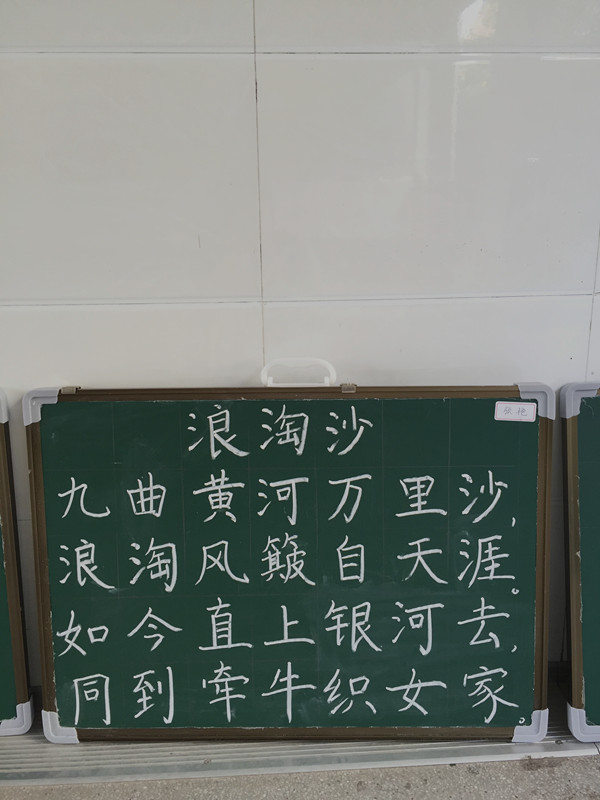 浪淘沙
张艳
九曲黄河万里沙,
浪淘风簸自天涯。
如今直上银河去,
同到牵牛织女家。